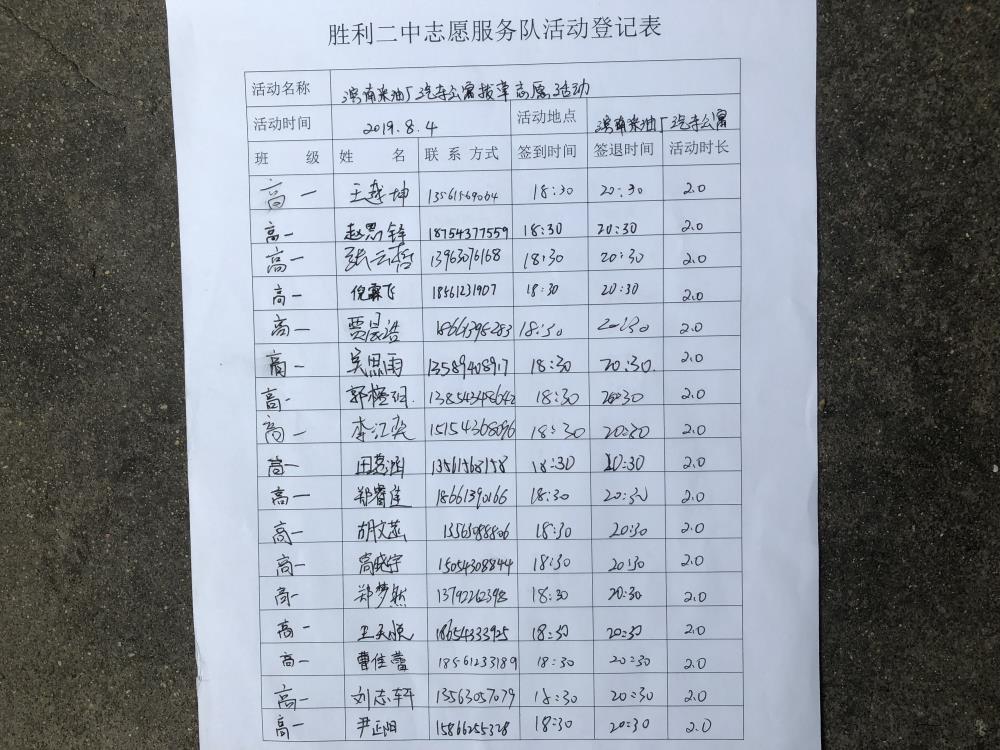 胜利二中志愿服务队活动登记表
活动名称 滨南采油厂汽车公寓拔草志愿活动
活动时间 2019.8.4 活动地点 滨南采油厂汽车公寓
班 级 姓 名 联 系 方式 签到时间 签退时间 活动时长
高一 王越坤 13561569064 18:30 20:30 2.0
高一 赵思锌 18754377559 18:30 20:30 2.0
高一 张云哲 13963076168 18:30 20:30 2.0
高一 倪霖飞 18561231907 18:30 20:30 2.0
高一 贾晨浩 18661398283 18:30 20:30 2.0
高一 吴思雨 13589408917 18:30 20:30. 2.0
高一 郭 13854348642 18:30 20:30 2.0
高一 李江奕 15154368096 18:30 20:30 2.0
高一 田嘉涵 13561568158 18:30 20:30 2.0
高一 郑睿 18661390166 18:30 20:30 2.0
高一 胡文菡 13563088806 18:30 20:30 2.0
高一 高晓宇 15054308844 18:30 20:30 2.0
高一 郑梦然 13792262398 18:30 20:30 2.0
高一 王天悦 18654333925 18:30 20:30 2.0
高一 曹佳蕾 18561233189 18:30 20:30 2.0
高一 刘志轩 13563057079 18:30 20:30 2.0
高一 尹正阳 15866255328 18:30 20:30 2.0